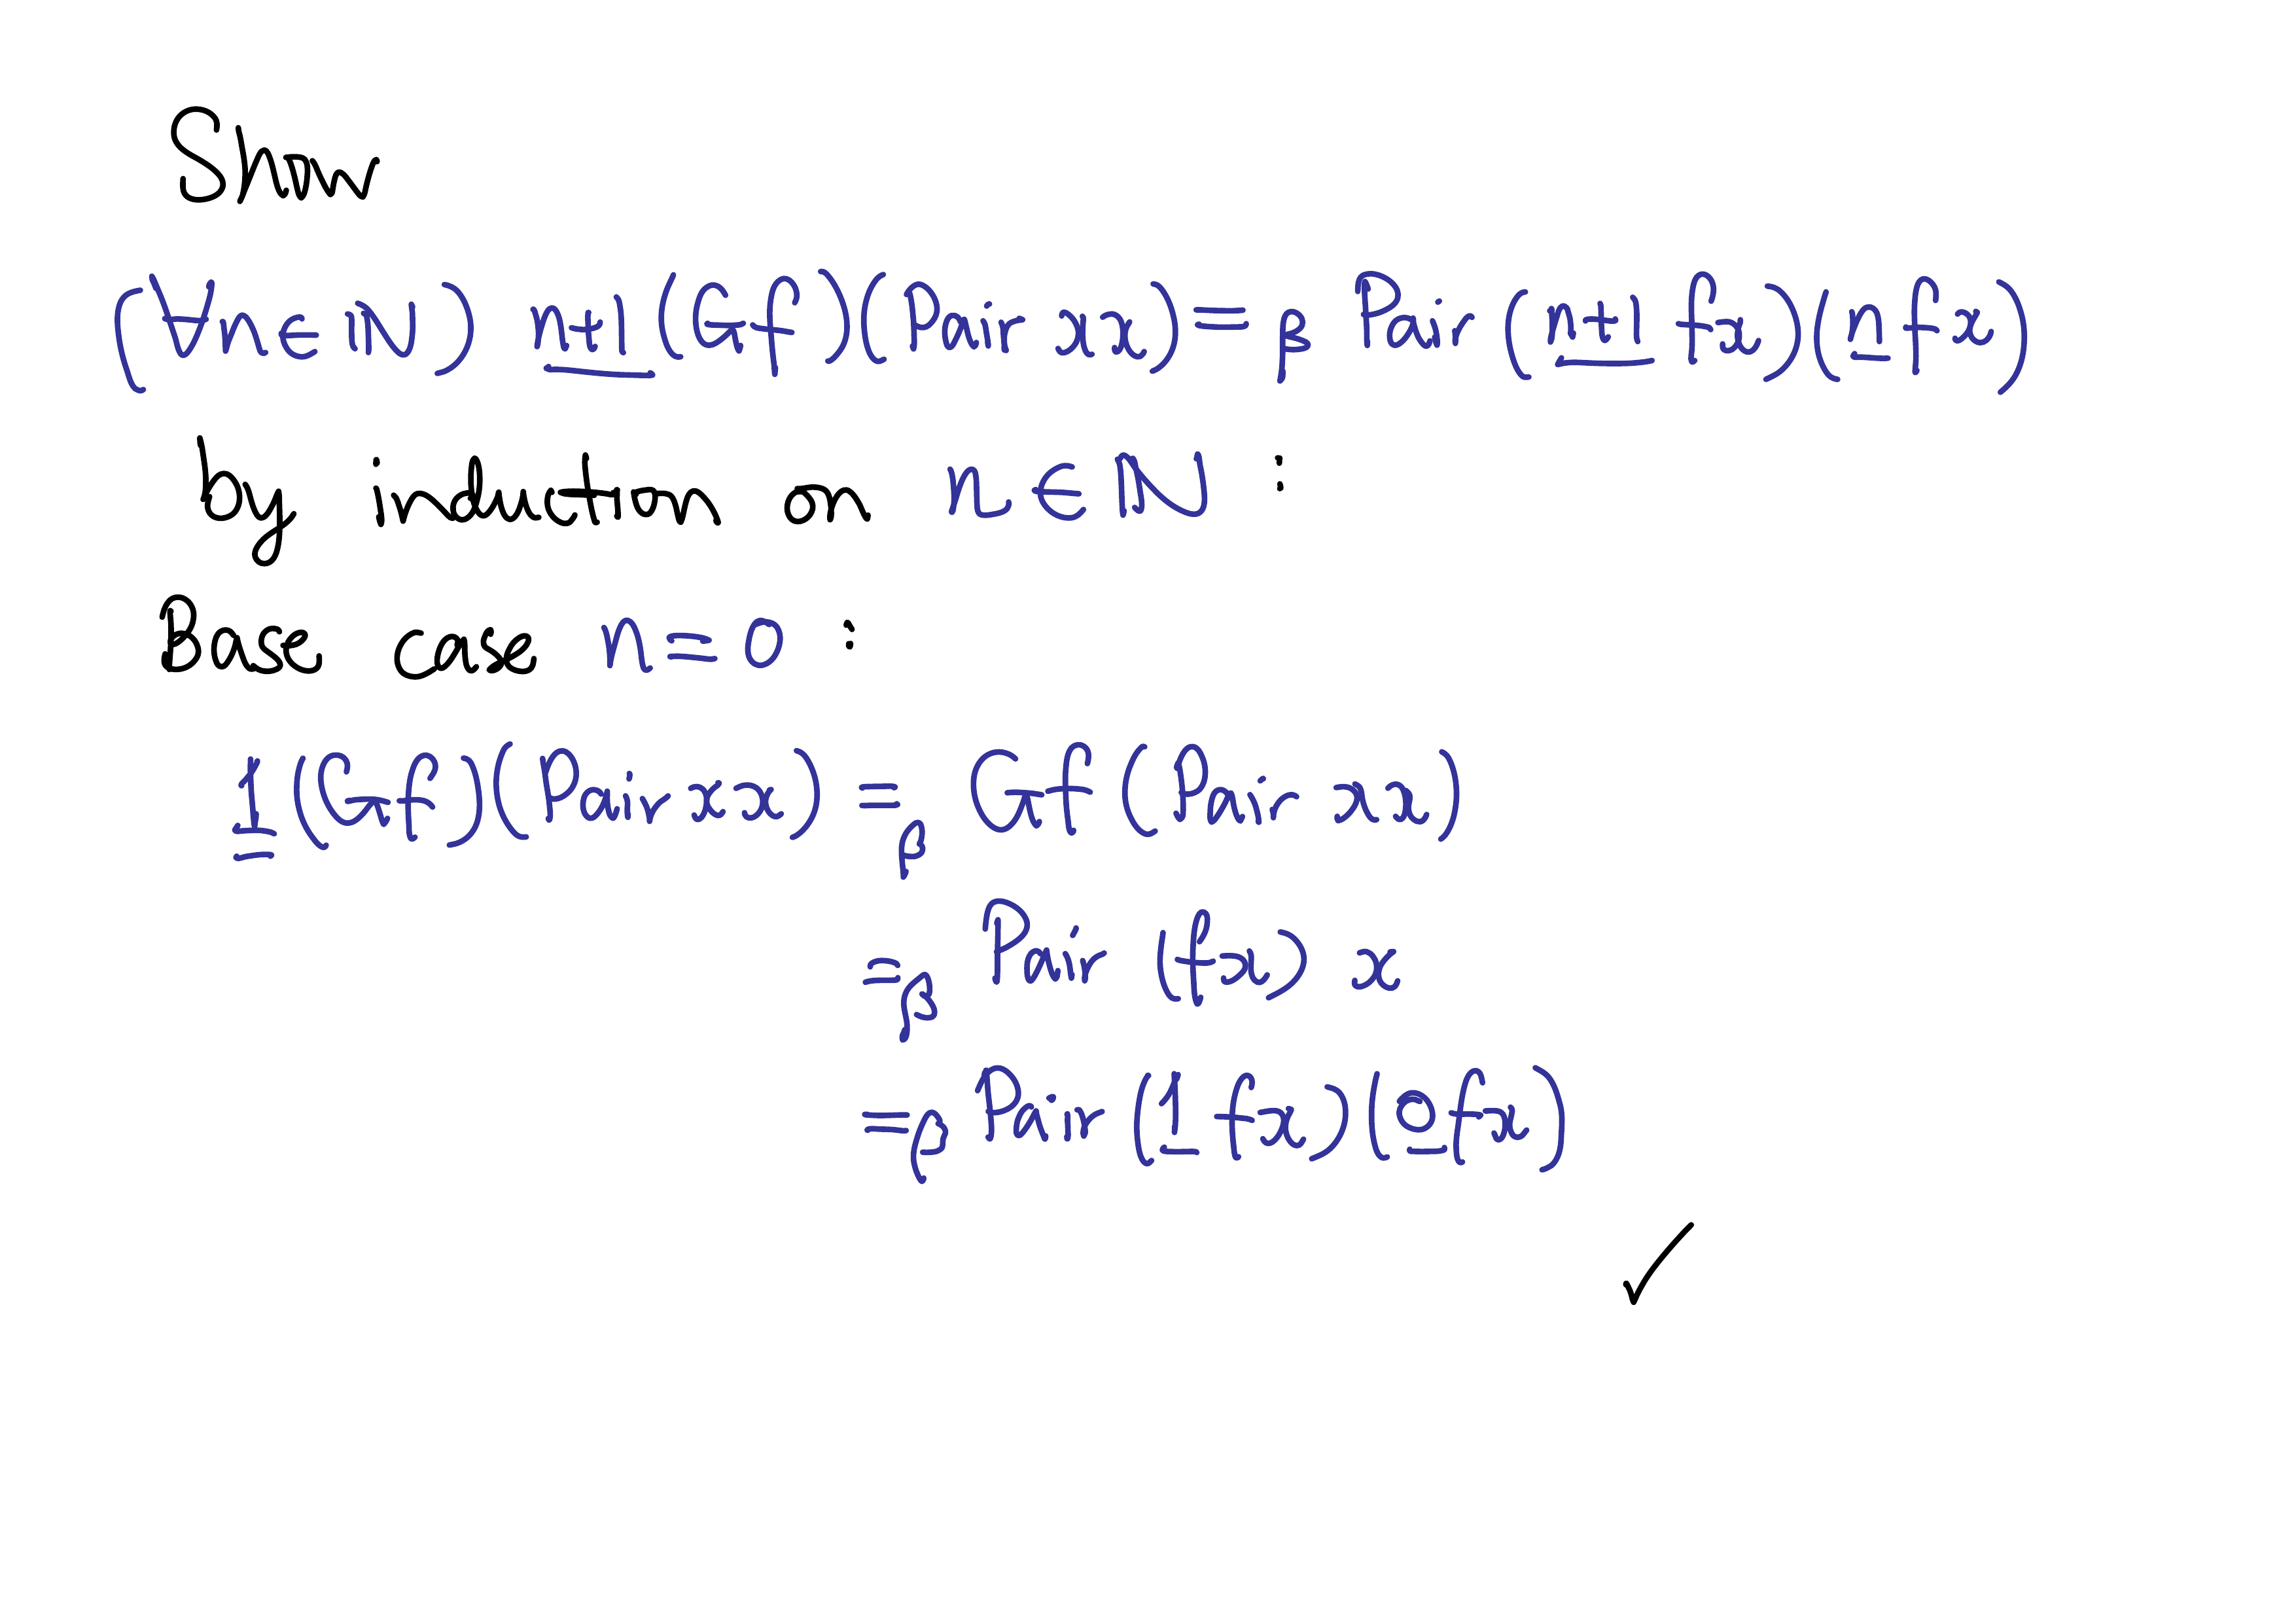 Show
(∀n∈ℕ) n+1(Gf)(Pair xx) =β Pair(n+1 fx)(n fx)
by induction on n∈ℕ :
Base case n=0 :
1(Gf)(Pair xx) =β Gf(Pair xx)
=β Pair (fx) x
=β Pair(1 fx)(0 fx)
✓